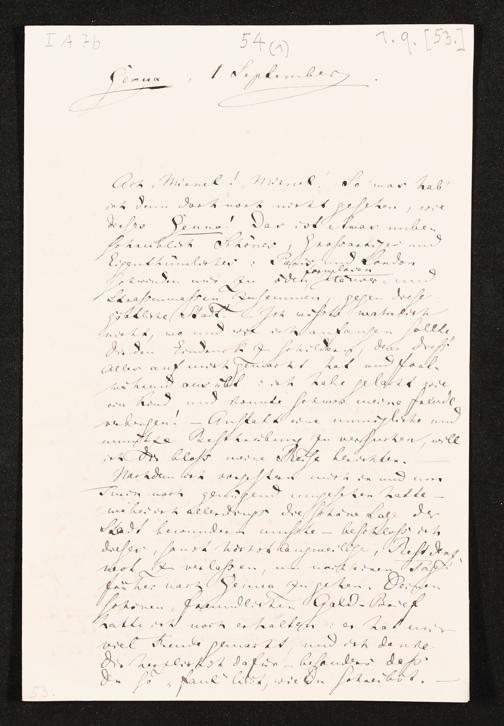 I A 7b
54 (1)
1. 9. [53.]
Genua, 1 September.
Ach, Mienel! Mienel! So 'was hab'
ich denn doch noch nicht gesehen, wie
dieses Genua! Das ist etwas unbe-
schreiblich Schönes, Grossartiges und
Eigenthümliches: Paris und London
schwinden mir zu öden Häuser- und
formlosen
Strassenmassen zusammen, gegen diese
göttliche Stadt. Ich wüsste wahrlich
nicht, wo und wie ich anfangen sollte
Dir den Eindruck zu schildern, den diess
Alles auf mich gemacht hat und fort-
während ausübt: ich habe gelacht wie
ein Kind und konnte schwer meine Freude
verbergen! – Anstatt eine unmögliche und
unnütze Beschreibung zu versuchen, will
ich Dir bloss meine Reise berichten. –
Nachdem ich vorgestern mich in und um
Turin noch genügend umgesehen hatte –
wobei ich allerdings die schöne Lage der
Stadt bewundern musste – beschloss ich
dieses, sonst höchst langweilige, Residenz-
nest zu verlassen, um noch einen Tag
früher nach Genua zu gehen. Deinen
schönen, freundlichen Geld-Brief
hatte ich noch erhalten: er hat mir
viel Freude gemacht, und ich danke
Dir herzlichst dafür – besonders dass
Du so "faul" bist, wie Du schreibst. –
53.